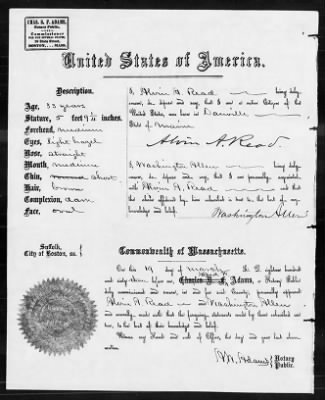 CHAS. B. F. ADAMS,
Notary Public,
AND
Commissioner
FOR THE SEVERAL STATES,
20 State Street,
BOSTON, MASS.
United States of America.
Description.
Age, 33 years
Stature, 5 feet 9½ inches
Forehead, medium
Eyes, light hazel
Nose, straight
Mouth, medium
Chin, short
Hair, brown
Complexion,
Face, oval
I, Alvin A. Read being duly
sworn, do depose and say, that I am a native Citizen of the
United States, was born in Danville
State of Maine
Alvin A. Read.
I, Washington Allen being duly
sworn, do depose and say, that I am personally acquainted
with Alvin A. Read and that
the above affidavit has been subscribed in to the best of my
knowledge and belief.
Washington Allen
Suffolk,
City of Boston, ss.
Commonwealth of Massachusetts.
On this 19 day of March A. D. eighteen hundred
and sixty before me Adams, a Notary Public
duly commissioned and sworn, in and for said County, personally appeared
Alvin A. Read and Washington Allen
and severally made oath that the foregoing statements made by them subscribed are
true, to the best of their knowledge and belief.
Witness my Hand and seal of Office, the day and year last above
written.
Adams Notary
Public.